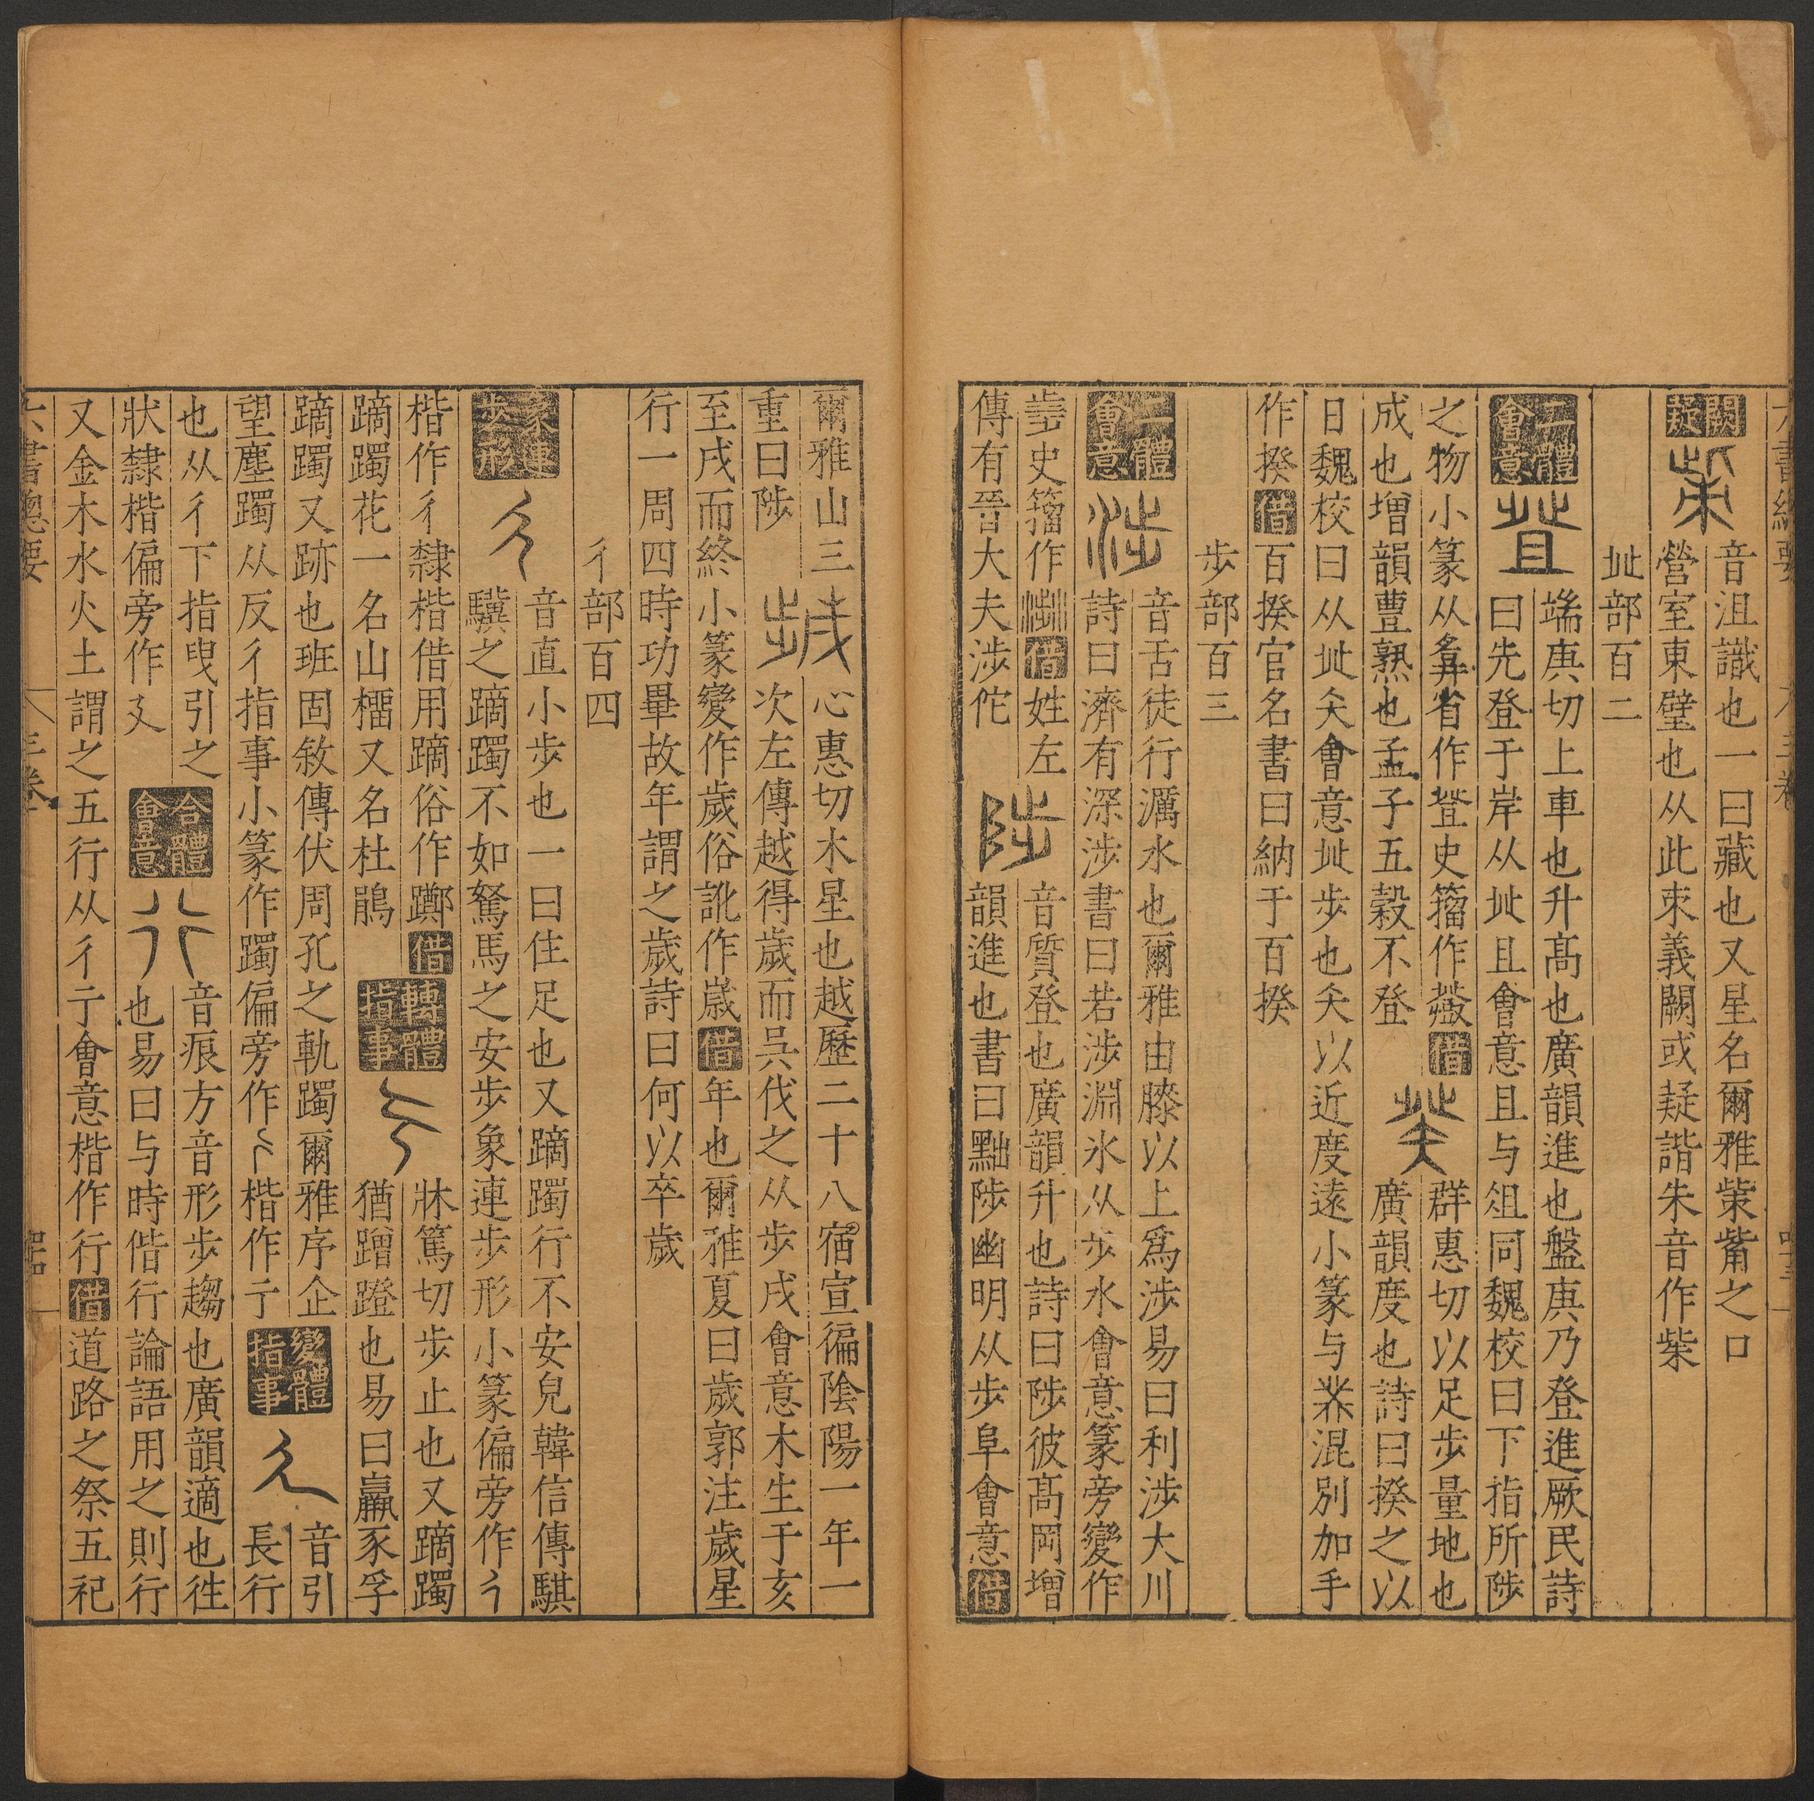 闕疑
音沮識也一曰藏也又星名爾雅㭰觜之口
營室東壁也从此朿義闕或疑諧朱音作㭰
址部百二
二體會意
端庚切上車也升高也廣韻進也盤庚乃登進厥民詩
曰先登于岸从址且會意且与俎同魏校曰下指所陟
之物小篆从䇺省作登史籀作
借
成也增韻豊熟也孟子五穀不登
群惠切以足步量地也
廣韻度也詩曰揆之以
日魏校曰从址矢會意址步也矢以近度遠小篆与㷊混別加手
作揆
借
百揆官名書曰納于百揆
步部百三
二體會意
音舌徒行濿水也爾雅由膝以上爲涉易曰利涉大川
詩曰濟有深涉書曰若涉淵氷从步水會意篆旁變作
史籀作
借
姓左
傳有晉大夫涉佗
音質登也廣韻升也詩曰陟彼高岡增
韻進也書曰黜陟幽明从步阜會意
借
爾雅山三
重曰陟
心惠切木星也越歷二十八宿宣徧陰陽一年一
次左傳越得歲而吳伐之从步戌會意木生于亥
至戌而終小篆變作歲俗訛作歳
借
年也爾雅夏曰歲郭注歲星
行一周四時功畢故年謂之歲詩曰何以卒歲
彳部百四
象連步形
音直小步也一曰住足也又蹢躅行不安皃韓信傳騏
驥之蹢躅不如駑馬之安步象連步形小篆偏旁作彳
楷作彳隸楷借用蹢俗作躑
借
蹢躅花一名山橊又名杜鵑
轉體指事
牀篤切步止也又蹢躅
猶蹭蹬也易曰羸豕孚
蹢躅又跡也班固敘傳伏周孔之軌躅爾雅序企
望塵躅从反彳指事小篆作躅偏旁作 楷作亍
變體指事
音引
長行
也从彳下指曳引之
狀隸楷偏旁作廴
合體會意
音痕方音形步趨也廣韻適也徃
也易曰与時偕行論語用之則行
又金木水火土謂之五行从彳亍會意楷作行
借
道路之祭五祀
六書總要
三卷